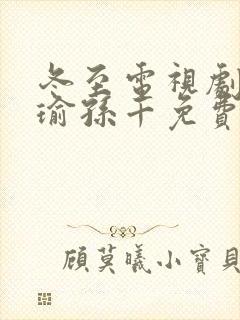 冬至電視劇
瑜孫千免費
顧莫曦小寶貝